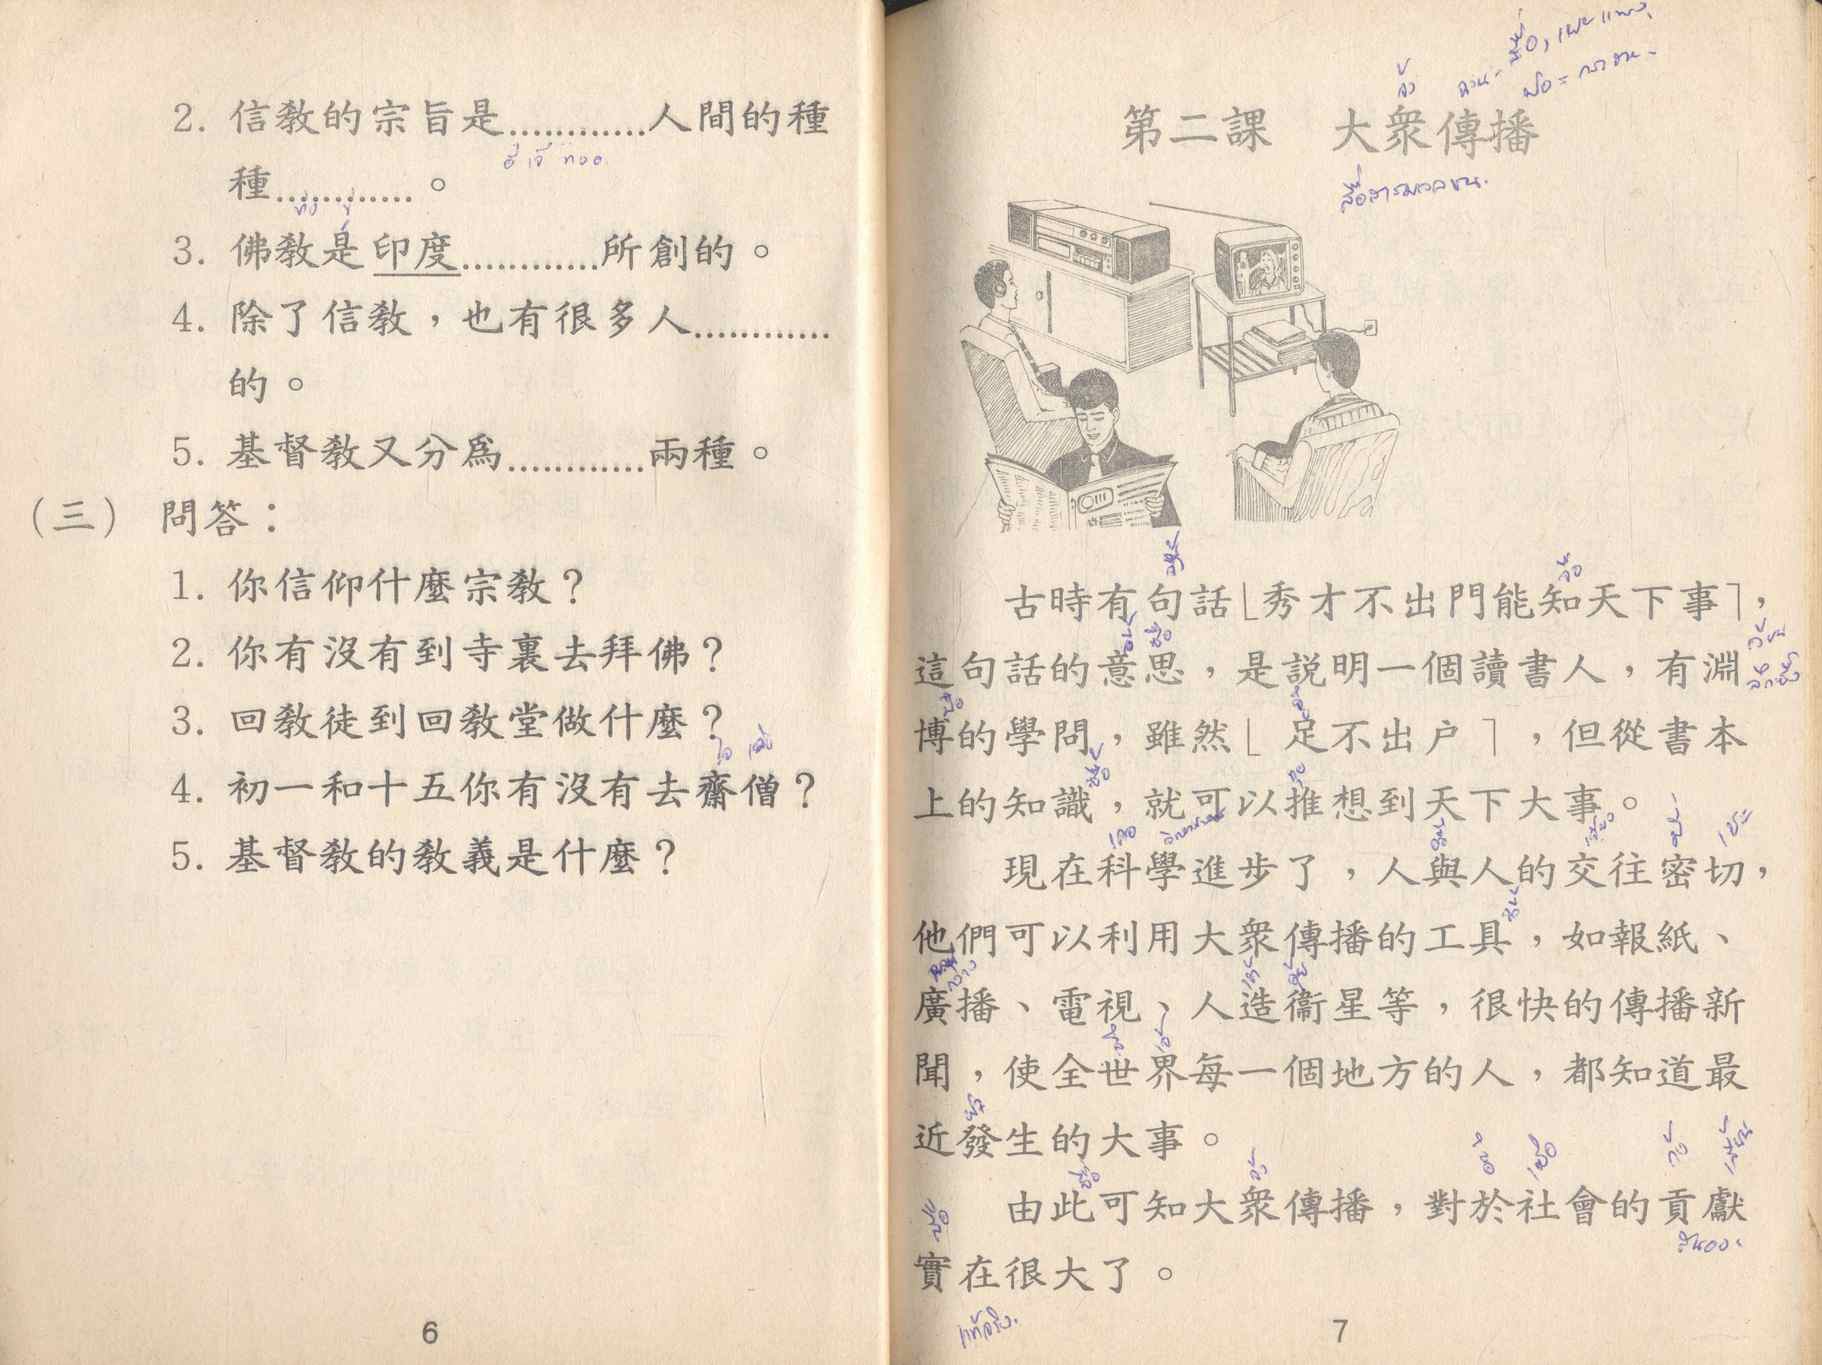 2. 信教的宗旨是.............人間的種
種.............。
3. 佛教是印度.............所創的。
4. 除了信教，也有很多人.............
的。
5. 基督教又分爲.............兩種。
（三） 問答：
1. 你信仰什麼宗教？
2. 你有沒有到寺裏去拜佛？
3. 回教徒到回教堂做什麼？
4. 初一和十五你有沒有去齋僧？
5. 基督教的教義是什麼？
6
第二課 大衆傳播
สื่อสารมวลชน.
古時有句話⌊秀才不出門能知天下事⌉，
這句話的意思，是説明一個讀書人，有淵
博的學問，雖然⌊足不出户⌉，但從書本
上的知識，就可以推想到天下大事。
現在科學進步了，人與人的交往密切，
他們可以利用大衆傳播的工具，如報紙、
廣播、電視、人造衞星等，很快的傳播新
聞，使全世界每一個地方的人，都知道最
近發生的大事。
由此可知大衆傳播，對於社會的貢獻
實在很大了。
แท้จริง.
7